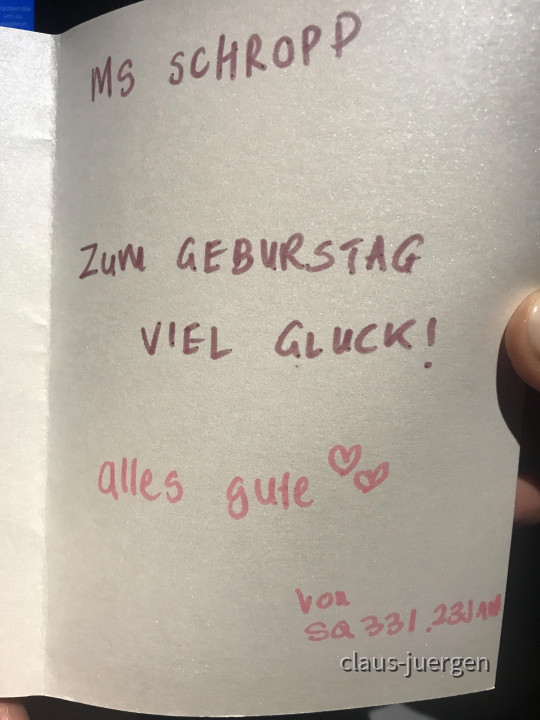 MS SCHROPP
Zum GEBURSTAG
VIEL GLUCK!
alles gute
von
SQ 331, 23JAN
claus-juergen